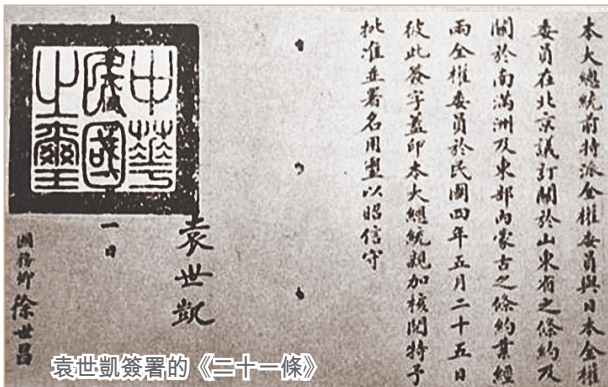 本大總統前特派全權委員與日本全權
委員在北京議訂關於山東省之條約及
關於南滿洲及東部內蒙古之條約業經
兩全權委員於民國四年五月二十五日
彼此簽字蓋印本大總統親加核閱特予
批准並署名用璽以昭信守
袁世凱
中華
民國
之璽
一日
國務卿徐世昌
袁世凱簽署的《二十一條》